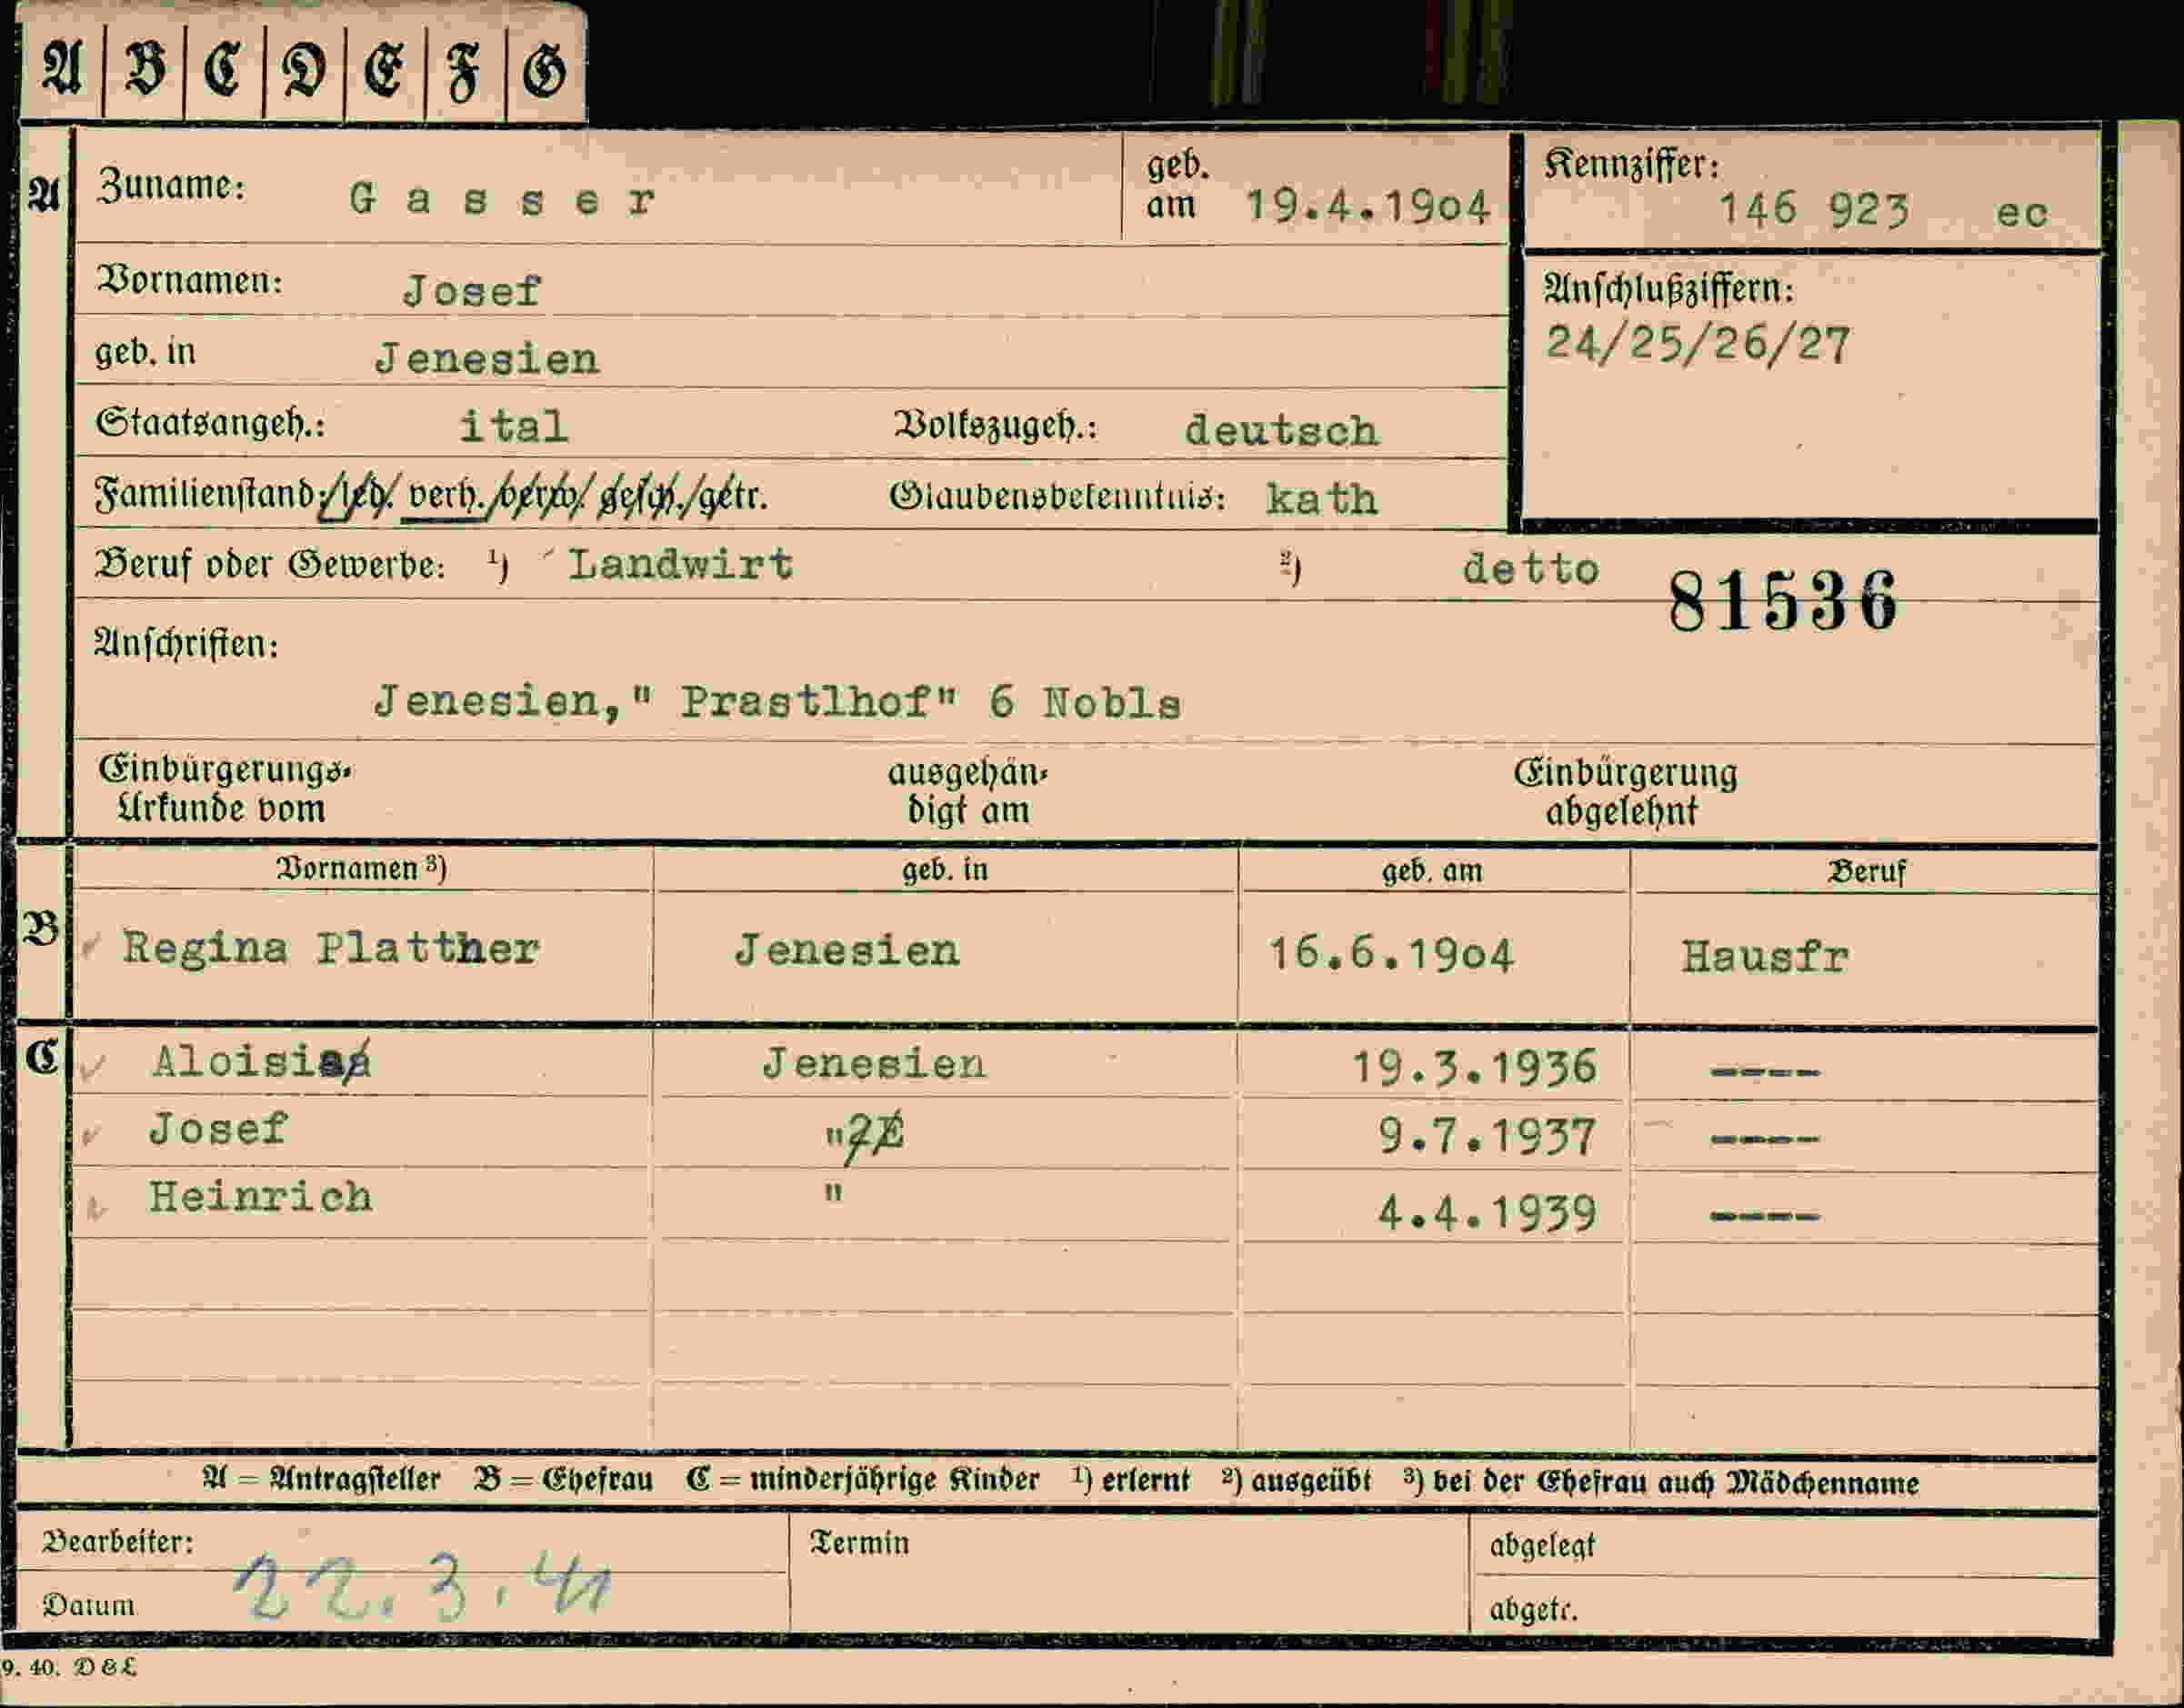 A B C D E F G
A Zuname: Gasser geb. am 19.4.1904 Kennziffer: 146 923 ec
Vornamen: Josef Anschlußziffern:
24/25/26/27
geb. in Jenesien
Staatsangeh.: ital Volkszugeh.: deutsch
Familienstand: led. verh./verw./gesch./getr. Glaubensbekenntnis: kath
Beruf oder Gewerbe: 1) Landwirt 2) detto
81536
Anschriften:
Jenesien," Prastlhof" 6 Nobls
Einbürgerungs- ausgehän- Einbürgerung
Urkunde vom digt am abgelehnt
Vornamen 3) geb. in geb. am Beruf
B Regina Plattner Jenesien 16.6.1904 Hausfr
C Aloisia Jenesien 19.3.1936 ----
Josef " 9.7.1937 ----
Heinrich " 4.4.1939 ----
A = Antragsteller B = Ehefrau C = minderjährige Kinder 1) erlernt 2) ausgeübt 3) bei der Ehefrau auch Mädchenname
Bearbeiter: Termin abgelegt
Datum 22.3.41 abgetr.
9. 40. D & L